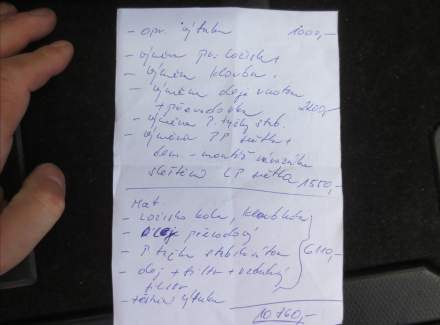 - opr. výfuku 1000,-
- výměna př. ložiska
- výměna kloubu.
- výměna oleje motor
+ převodovka 2100,-
- výměna P. tyčky stab.
- výměna PP světla +
dem. - montáž nárazníku
sleštění LP světla 1550,-
Mat
- Ložisko kola, kloub kola
- oleje převodový
- P tyčka stabilizátoru 6110,-
- olej + filtr + vzduchový
filtr
- těsnění výfuku
10 760,-